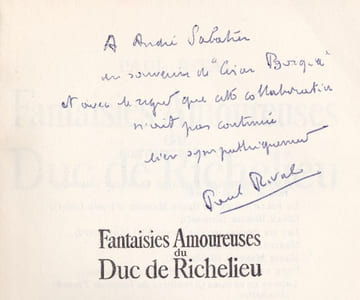 A André Sabatier
en souvenir de "César Borgia"
et avec le regret que cette collaboration
n'ait pas continué
bien sympathiquement
Paul Rival
Fantaisies Amoureuses
du
Duc de Richelieu